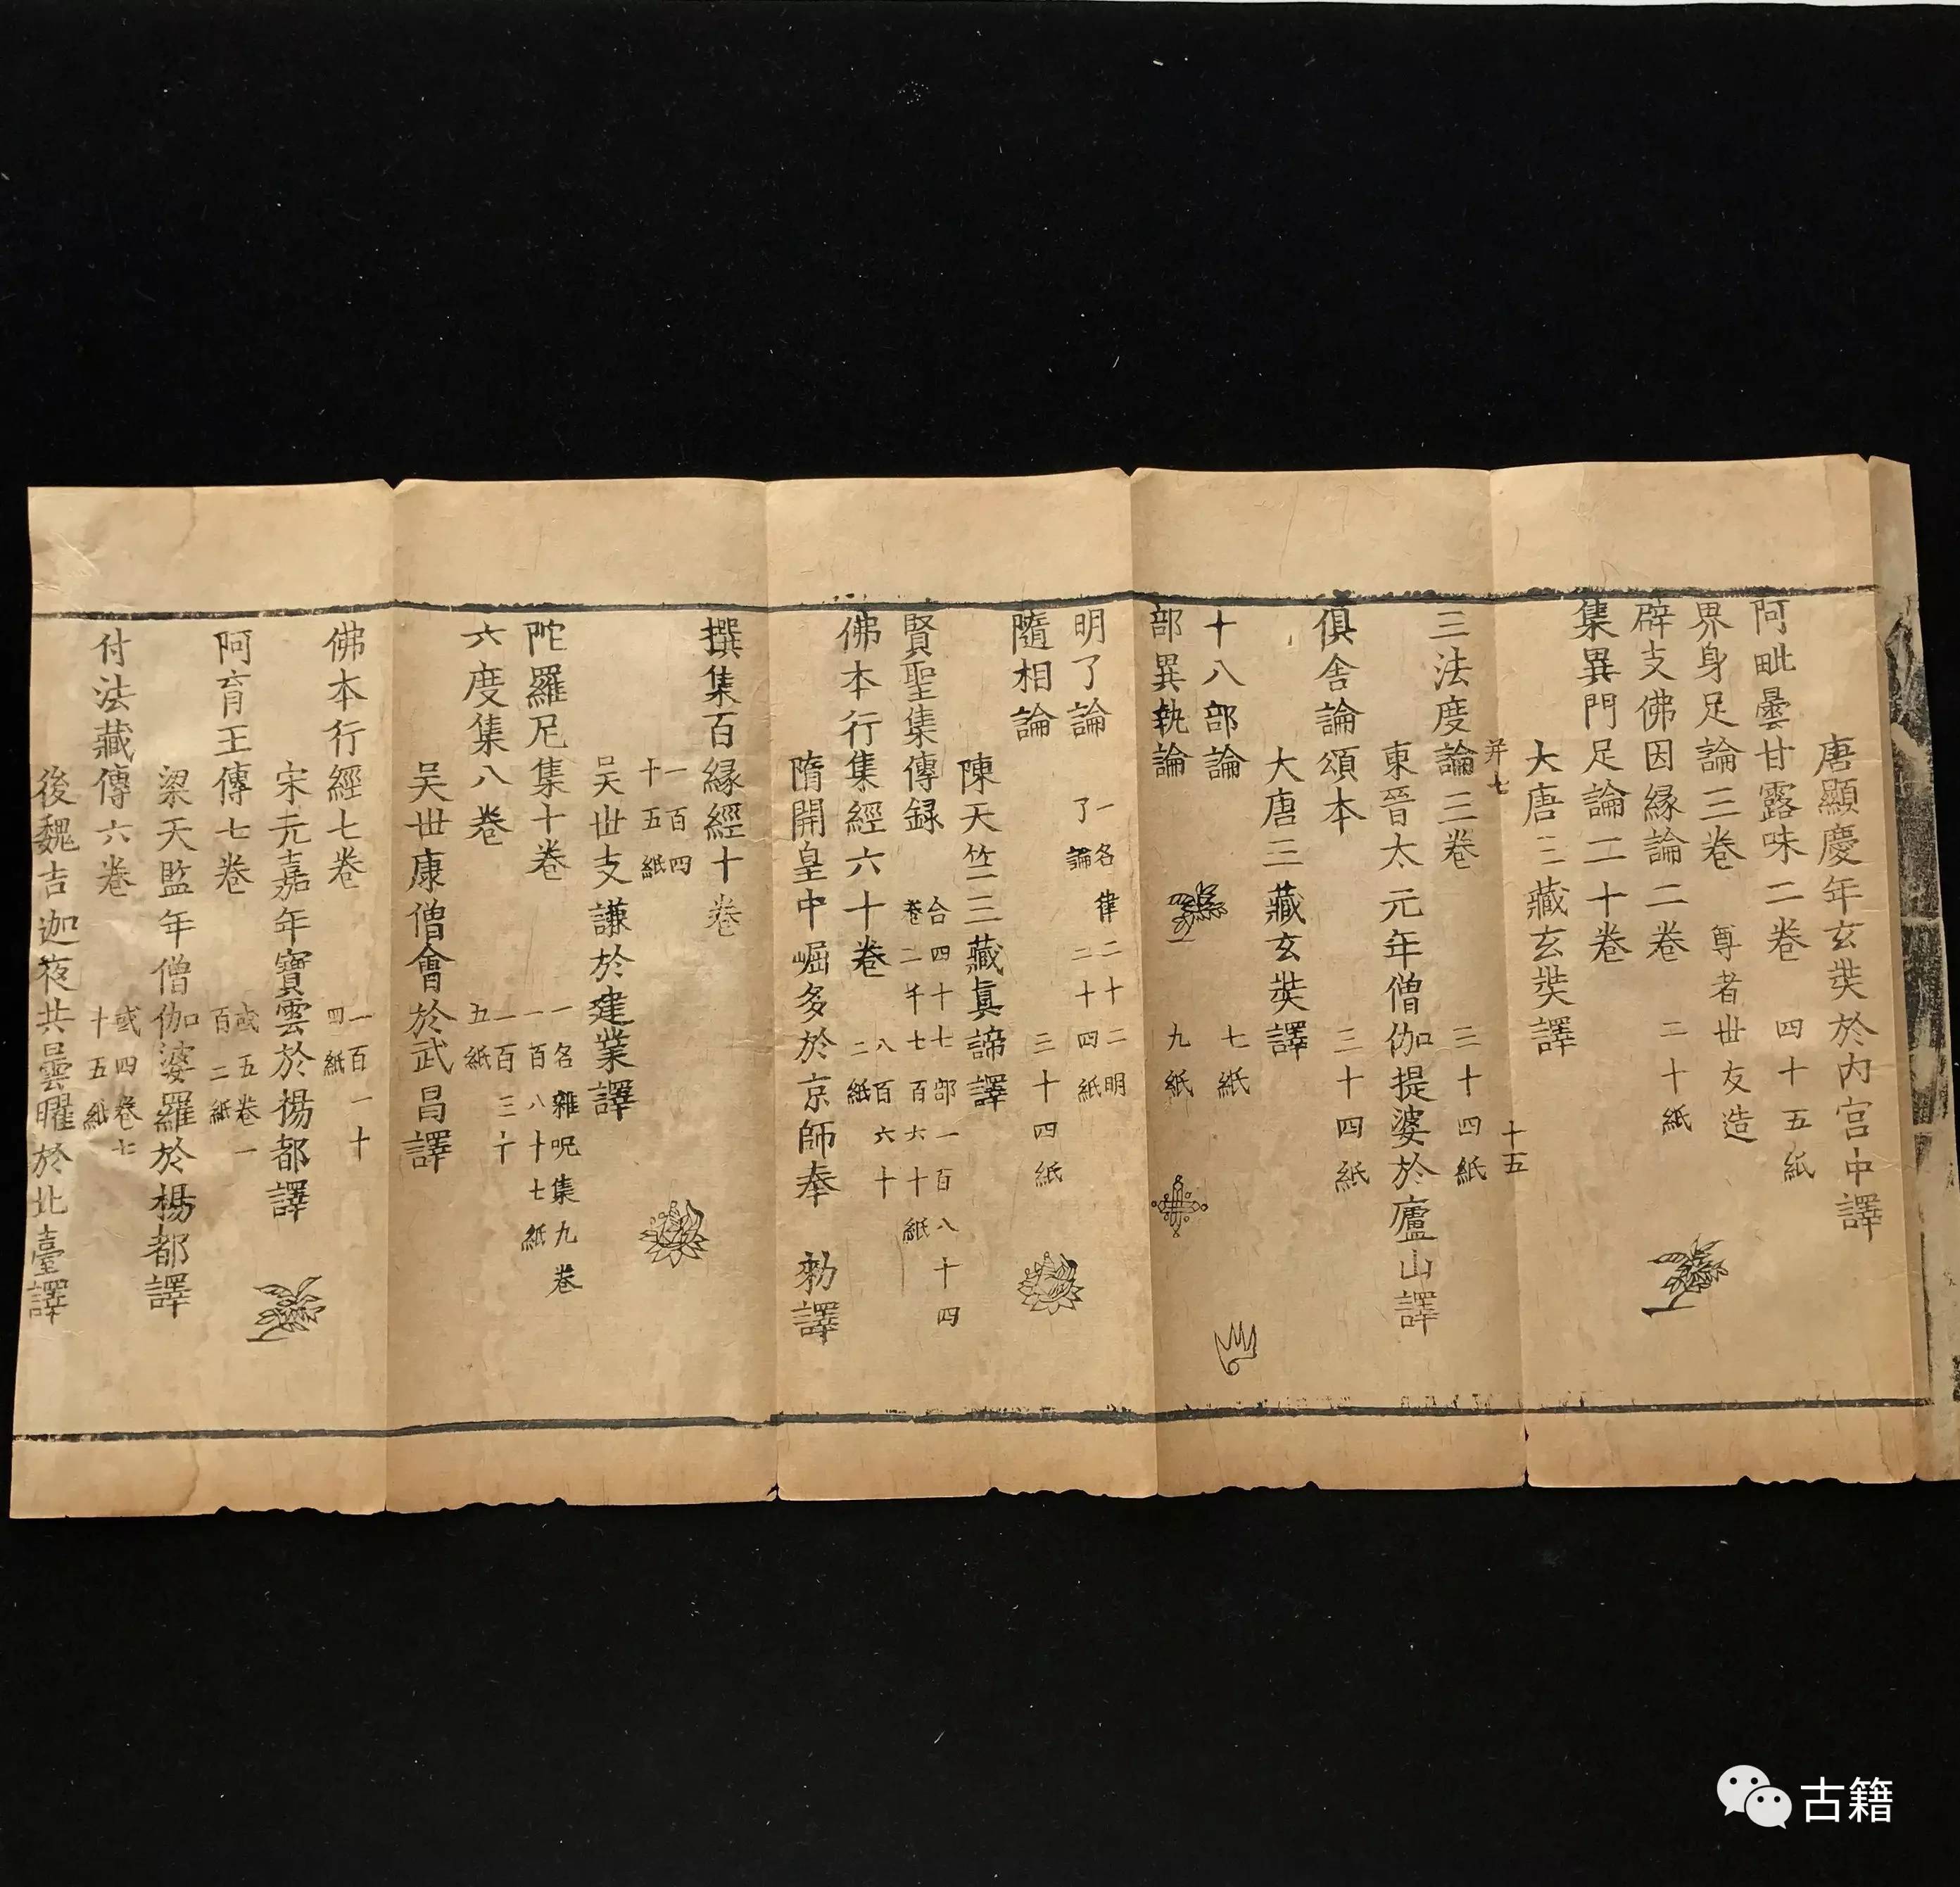 唐顯慶年玄奘於内宫中譯
阿毗曇甘露味二卷 四十五紙
界身足論三卷 尊者世友造
辟支佛因縁論二卷 二十紙
集異門足論二十卷
大唐三藏玄奘譯
并七 十五
三法度論三卷 三十四紙
東晉太元年僧伽提婆於廬山譯
俱舍論頌本 三十四紙
大唐三藏玄奘譯
十八部論 七紙
部異執論 九紙
明了論 一名律二十二明
了論 二十四紙
隨相論 三十四紙
陳天竺三藏真諦譯
賢聖集傳録 合四十七部一百八十四
卷二千七百六十紙
佛本行集經六十卷 八百六十
二紙
隋開皇中崛多於京師奉 勑譯
撰集百縁經十卷
一百四
十五紙
吴世支謙於建業譯
陀羅尼集十卷 一名雜呪集九卷
一百八十七紙
六度集八卷 一百三十
五紙
吴世康僧會於武昌譯
佛本行經七卷 一百一十
四紙
宋元嘉年寶雲於楊都譯
阿育王傳七卷 或五卷一
百二紙
梁天監年僧伽婆羅於楊都譯
付法藏傳六卷 或四卷七
十五紙
後魏吉迦夜共曇曜於北臺譯
古籍